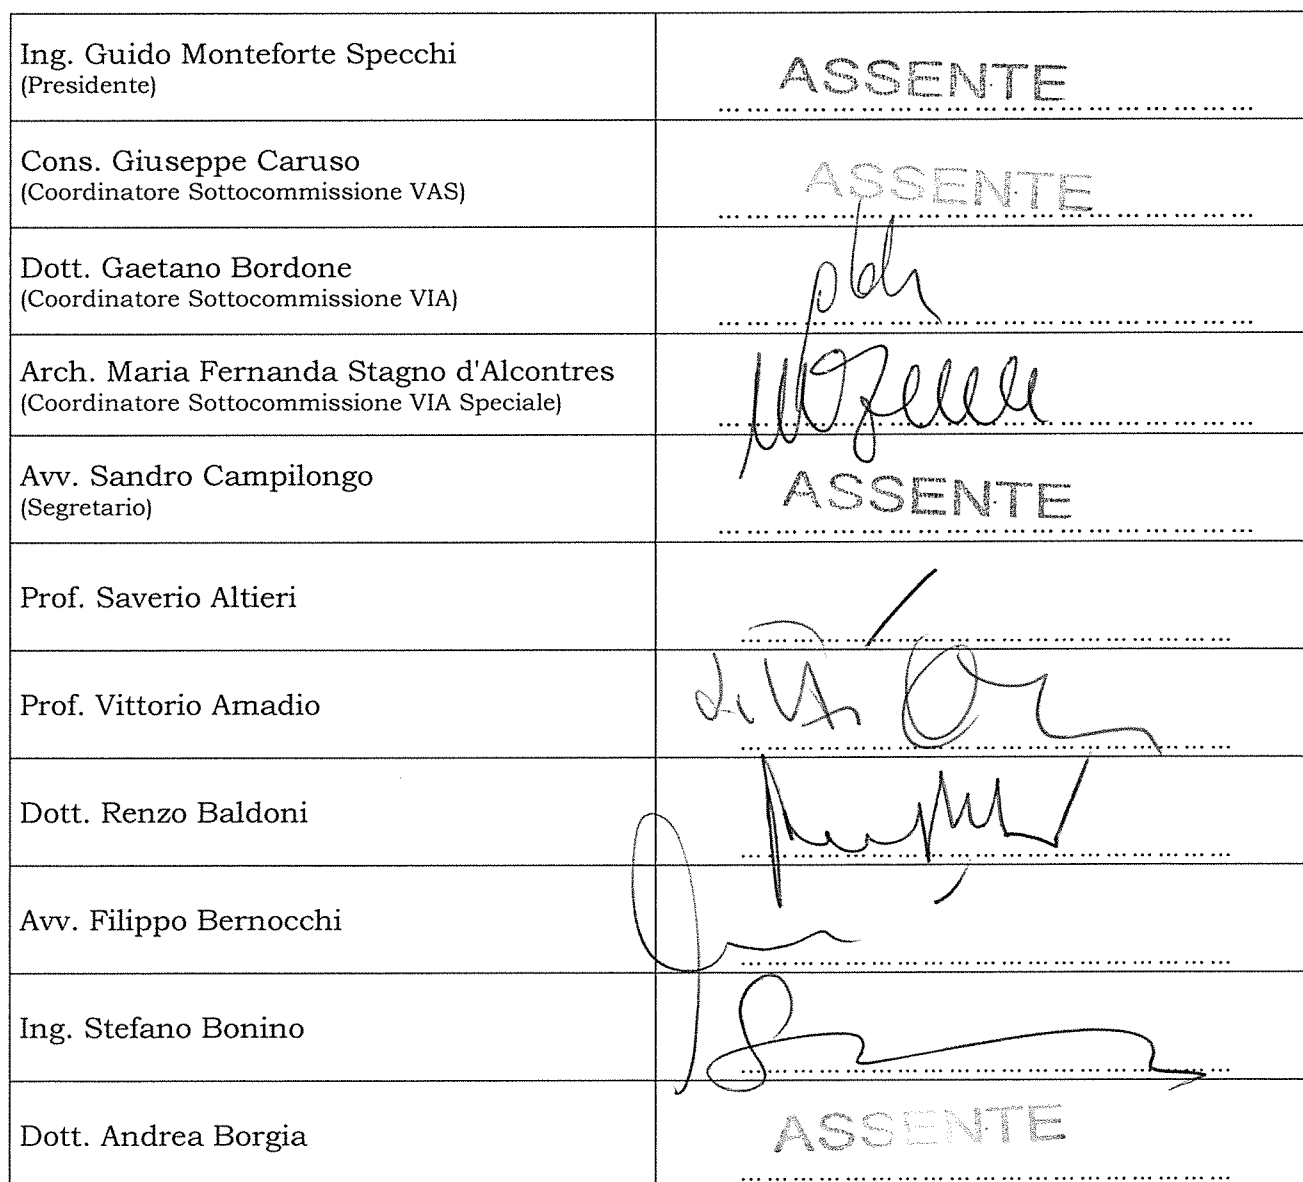 Ing. Guido Monteforte Specchi
(Presidente)
ASSENTE
Cons. Giuseppe Caruso
(Coordinatore Sottocommissione VAS)
ASSENTE
Dott. Gaetano Bordone
(Coordinatore Sottocommissione VIA)
Arch. Maria Fernanda Stagno d'Alcontres
(Coordinatore Sottocommissione VIA Speciale)
Avv. Sandro Campilongo
(Segretario)
ASSENTE
Prof. Saverio Altieri
Prof. Vittorio Amadio
Dott. Renzo Baldoni
Avv. Filippo Bernocchi
Ing. Stefano Bonino
Dott. Andrea Borgia
ASSENTE